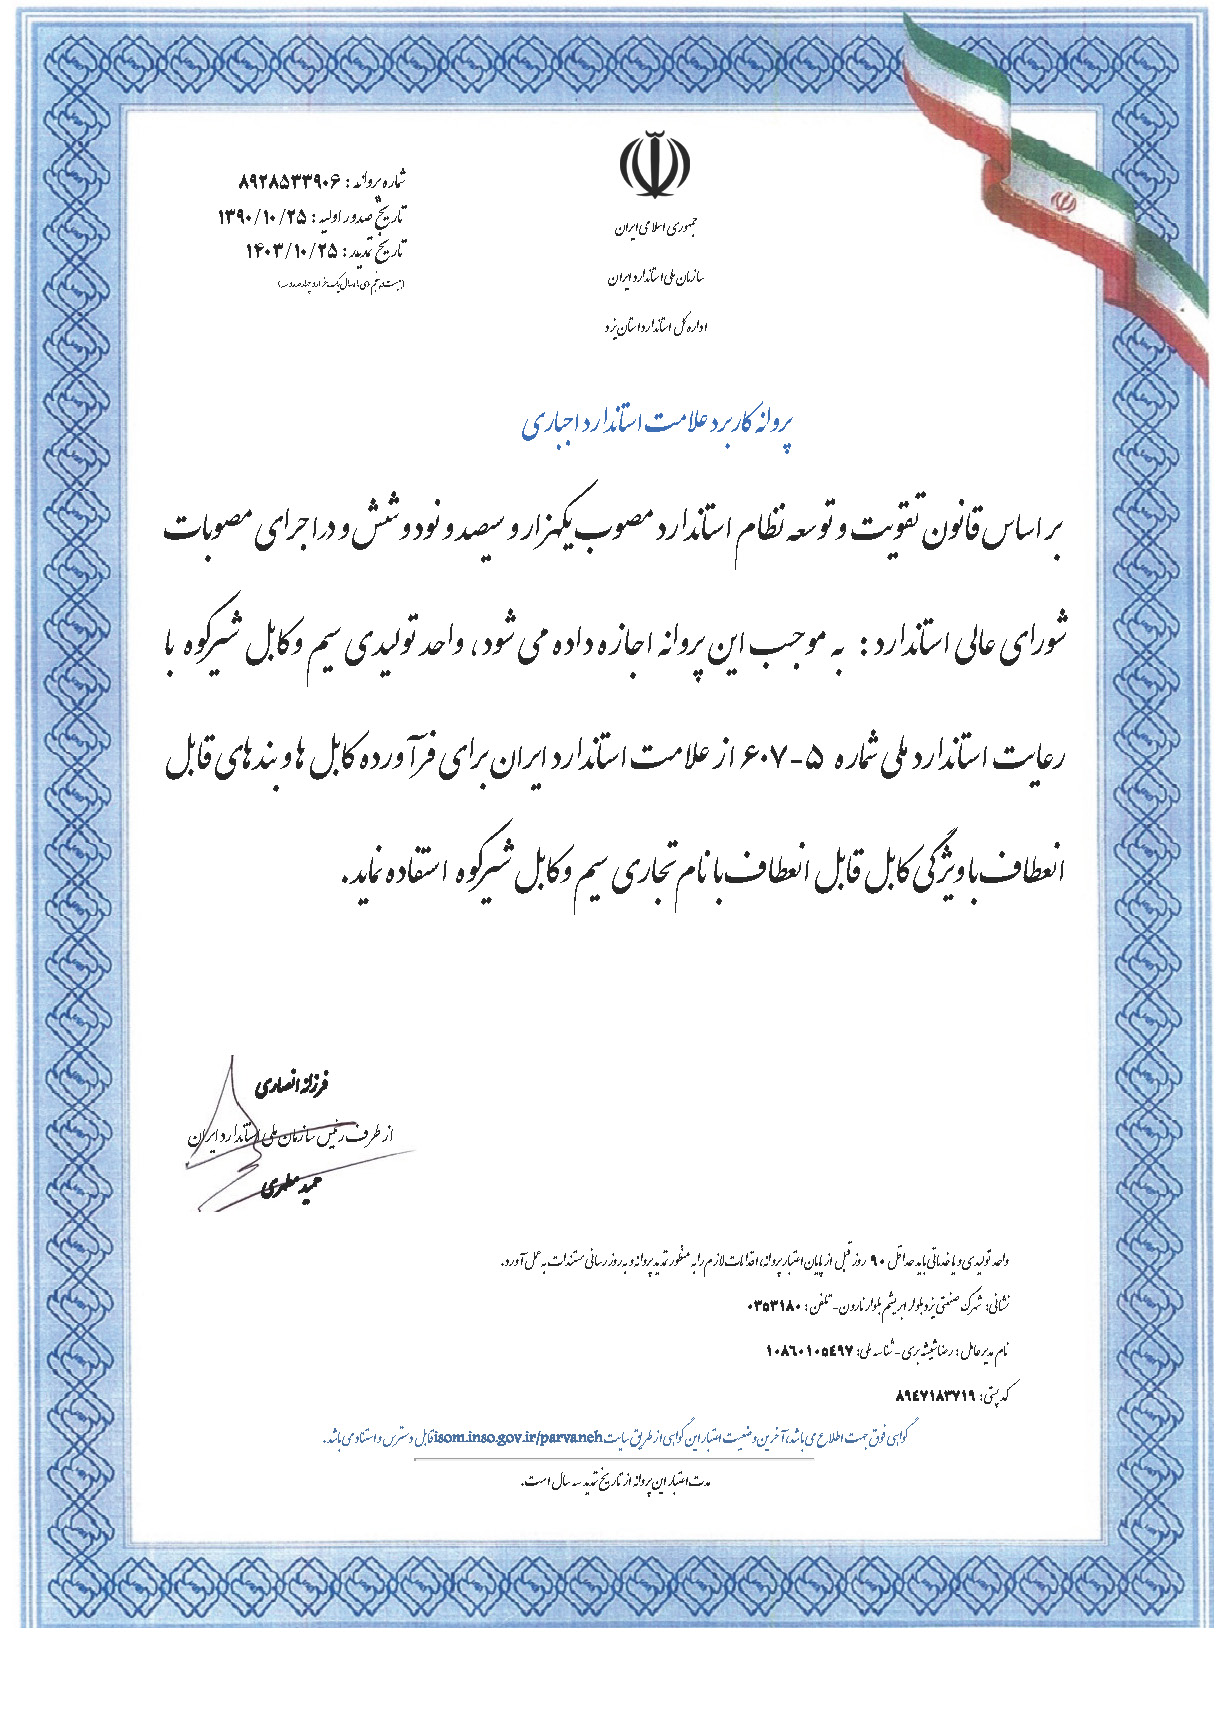 جمهوری اسلامی ایران
سازمان ملی استاندارد ایران
اداره کل استاندارد استان یزد
شماره پروانه : ۸۹۲۸۵۳۳۹۰۶
تاریخ صدور اولیه : ۱۳۹۰/۱۰/۲۵
تاریخ تمدید : ۱۴۰۳/۱۰/۲۵
پروانه کاربرد علامت استاندارد اجباری
بر اساس قانون تقویت و توسعه نظام استاندارد مصوب یکهزار و سیصد و نود و شش و در اجرای مصوبات
شورای عالی استاندارد : به موجب این پروانه اجازه داده می شود، واحد تولیدی سیم و کابل شیرکوه با
رعایت استاندارد ملی شماره ۵-۶۰۷ از علامت استاندارد ایران برای فرآورده کابل ها و بندهای قابل
انعطاف با ویژگی کابل قابل انعطاف با نام تجاری سیم و کابل شیرکوه استفاده نماید.
فرزانه انصاری
از طرف رئیس سازمان ملی استاندارد ایران
حمید مطهری
واحد تولیدی و یا خدماتی باید حداقل ۹۰ روز قبل از پایان اعتبار پروانه، اقدامات لازم را به منظور تمدید پروانه و به روز رسانی مستندات به عمل آورد.
نشانی: شهرک صنعتی یزد بلوار ابریشم بلوار نارون - تلفن : ۰۳۵۳۱۸۰
نام مدیر عامل : رضا شیشه بری - شناسه ملی: ۱۰۸٦۰۱۰۵٤۹۷
کد پستی: ۸۹٤۷۱۸۳۷۱۹
گواهی فوق جهت اطلاع می باشد، آخرین وضعیت اعتبار این گواهی از طریق سایت isom.inso.gov.ir/parvaneh قابل دسترس و استناد می باشد.
مدت اعتبار این پروانه از تاریخ تمدید سه سال است.